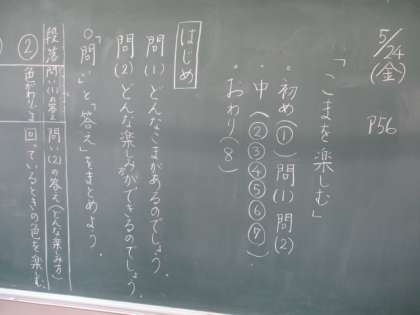 5/24
(金)
P56
「こまを楽しむ」
・初め(①)問(1) 問(2)
・中(②③④⑤⑥⑦)
・おわり(8)
はじめ
問(1) どんなこまがあるのでしょう。
問(2) どんな楽しみができるのでしょう。
○「問い」と「答え」をまとめよう。
段落 問い(1)の答え 問い(2)の答え(どんな楽しみ方)
② 色がわりごま 回っているときの色を楽しむ